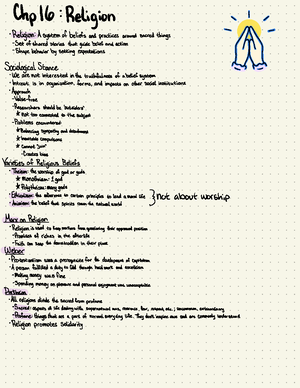 Chp 16: Religion
- Religion: A system of beliefs and practices around sacred things
- Set of shared stories that guide belief and action
- Shape behavior by setting expectations
Sociological Stance
- We are not interested in the truthfulness of a belief system
- Interest is in organization, forms, and impacts on other social institutions
- Approach
- Value-free
- Researchers should be 'outsiders'
* Not too connected to the subject
- Problems encountered:
* Balancing sympathy and detachment
* Inevitable comparisons
* Cannot
- Creates bias
Varieties of Religious Beliefs
- Theism: the worship of god or gods
* Monotheism: 1 god
* Polytheism: many gods
- Ethicalism: the adherence to certain principles to lead a moral life
- Animism: the belief that spirits roam the natural world
} not about worship
Marx on Religion
- Religion is used to keep workers from questioning their oppressed position
- Promises of riches in the afterlife
- Faith can keep the in their place
Weber
- Protestantism was a prerequisite for the development of capitalism
- A person fulfilled a duty to God though hard work and asceticism
- Making money was fine
- Spending money on pleasure and personal enjoyment was unacceptable
Durkheim
- All religions divide the sacred from profane
- Sacred: aspects of life dealing with supernatural awe, reverence, fear, respect, etc.; uncommon, extraordinary
- Profane: things that are a part of normal everyday life. They don't inspire awe and are commonly understood
- Religion promotes Solidarity